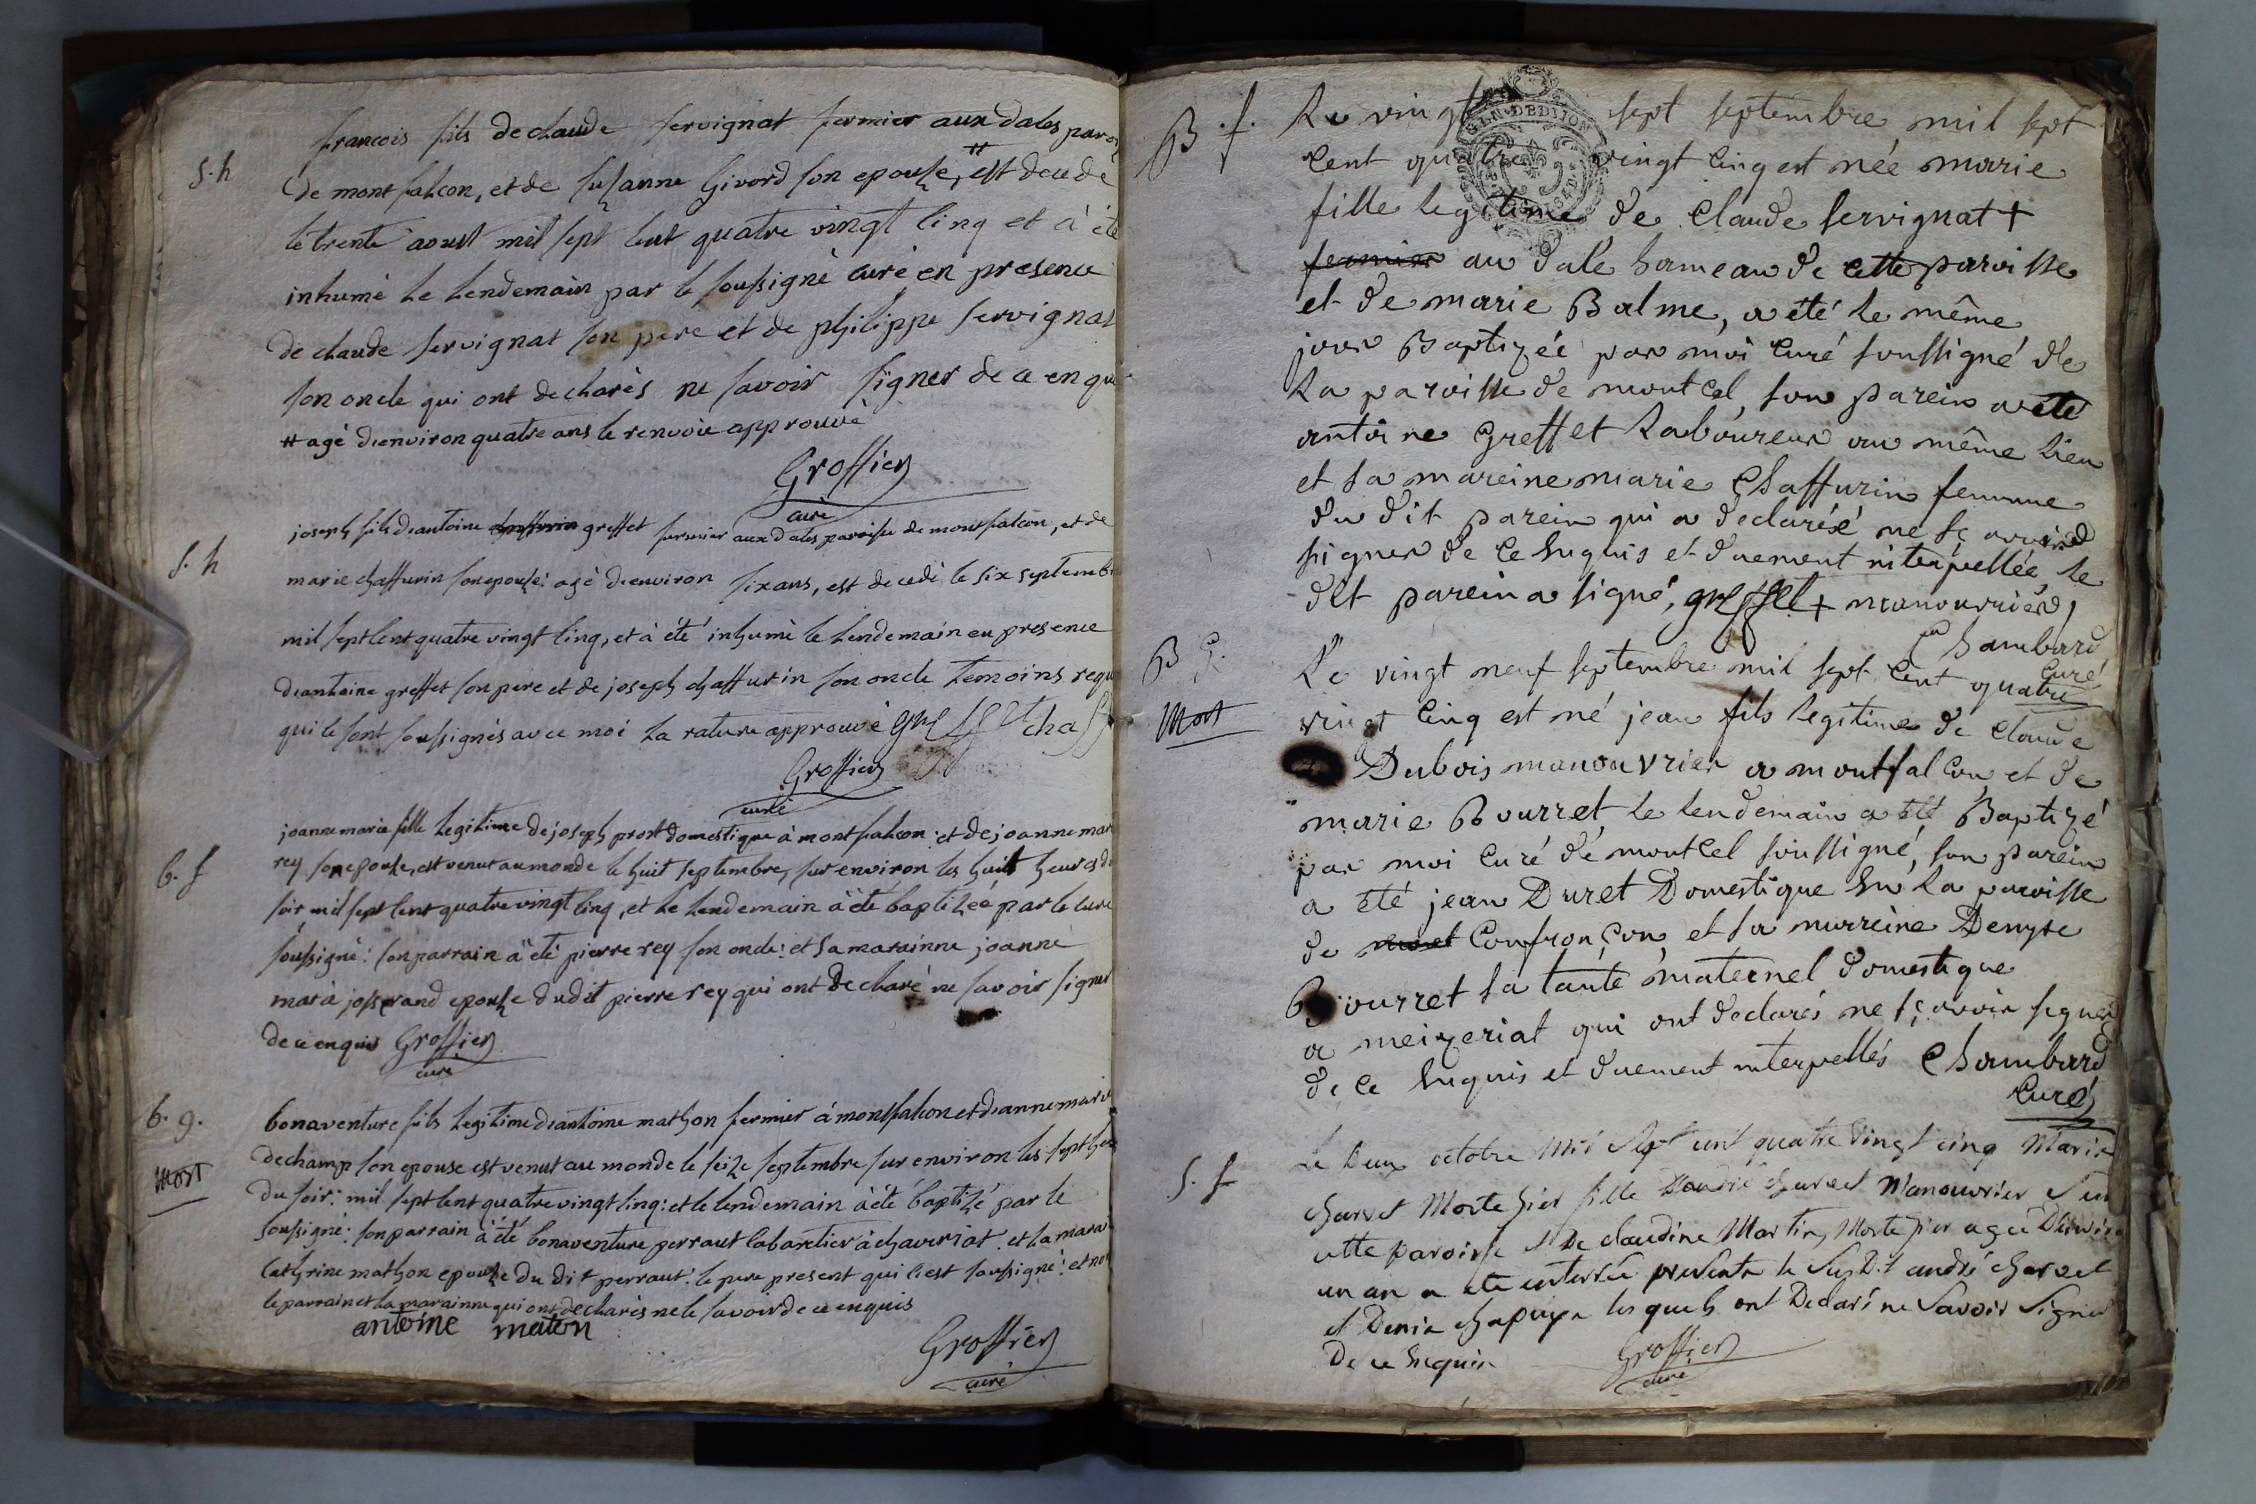 s.h
francois fils de claude servignat fermier aux dales paroi
de montfalcon, et de susanne Givord son epouse, # est decede
le trente aoust mil sept cent quatre vingt cinq et à été
inhumé le lendemain par le soussigné curé en presence
de claude servignat son pere et de philippe servignat
son oncle qui ont declarés ne savoir signer de ce enquis
# agé d'environ quatre ans le renvoie approuvé
Groffier
curé
s.h
joseph fils d'antoine chaffurin greffet fermier aux dales paroisse de montfalcon, et de
marie chaffurin son epouse: agé d'environ six ans, est decedé le six septembre
mil sept cent quatre vingt cinq, et à été inhumé le lendemain en presence
d'antoine greffet son pere et de joseph chaffurin son oncle temoins requ
qui se sont soussignés avec moi la rature approuvé greffet chaff
Groffier
curé
b.f
joanne marie fille legitime de joseph prost domestique à montfalcon: et de joanne mar
rey son epouse, est venue au monde le huit septembre, sur environ les huit heures du
soir mil sept cent quatre vingt cinq, et le lendemain à été baptisée par le curé
soussigné: son parrain à été pierre rey son oncle: et sa marainne joanne
maria josserand epouse dudit pierre rey qui ont declaré ne savoir signer
de ce enquis Groffier
curé
b.g.
mort
bonaventure fils legitime d'antoine mathon fermier à montfalcon et d'anne marie
dechamp son epouse est venut au monde le seize septembre sur environ les sept heu
du soir: mil sept cent quatre vingt cinq: et le lendemain à été baptisé par le
soussigné: son parrain à été bonaventure perraut cabaretier à chaveriat. et la marai
cathrine mathon epouse du dit perraut. le pere present qui s'est soussigné: et non
le parrain et la marainne qui ont declarés ne le savoir de ce enquis
antoine maton
Groffier
curé
B.f.
Le vingt sept septembre mil sept
cent quatre vingt cinq est née marie
fille legitime de Claude servignat +
fermier au dalé hameau de cette paroisse
et de marie Balme, a été le même
jour Baptizée par moi Curé soussigné de
la paroisse de montcel, son parein a été
antoine Greffet Laboureur au même lieu
et sa mareine marie Chaffurin femme
du dit parein qui a declaréé ne sçavoir
signer de ce Enquis et duement interpellée, le
dit parein a signé, greffet + manouvrier
Chambard
Curé
B G.
Mort
Le vingt neuf septembre mil sept Cent quatre
vingt Cinq est né jean fils legitime de Claude
Dubois manouvrier a montfalcon et de
marie Bourret le lendemain a été Baptizé
par moi Curé de montcel soussigné, son parein
a été jean Duret Domestique En la paroisse
de Confrançon, et sa marreine Denyse
Bourret sa tante maternel domestique
a meizeriat qui ont declarés ne sçavoir signer
de ce Enquis et duement interpellés Chambard
Curé
s.f
Le Deux octobre Mil sept cent quatre vingt cinq Marie
charvet Mortepier fille D'andré charvet Manouvrier sur
cette paroisse et De claudine Martin, Mortepier agée D'environ
un an a été enterrée présents le susDit andré charvet
et Denis chapuys les quels ont Declaré ne savoir signer
De ce Enquis
Groffier
curé